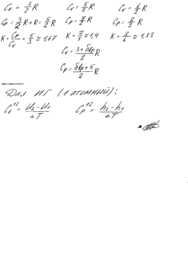 Cv = 3/2 R Cv = 5/2 R Cv = 6/2 R
Cp = 3/2 R + R = 5/2 R Cp = 7/2 R Cp = 8/2 R
K = Cp/Cv = 5/3 ≈ 1,67 K = 7/5 ≈ 1,4 K = 8/6 ≈ 1,33
Cv = 3 + δвр/2 R
Cp = δвр + 5/2 R
Для ИГ ( атомный):
Cv¹² = U2 - U1/ΔT Cp¹² = h2 - h1/ΔT